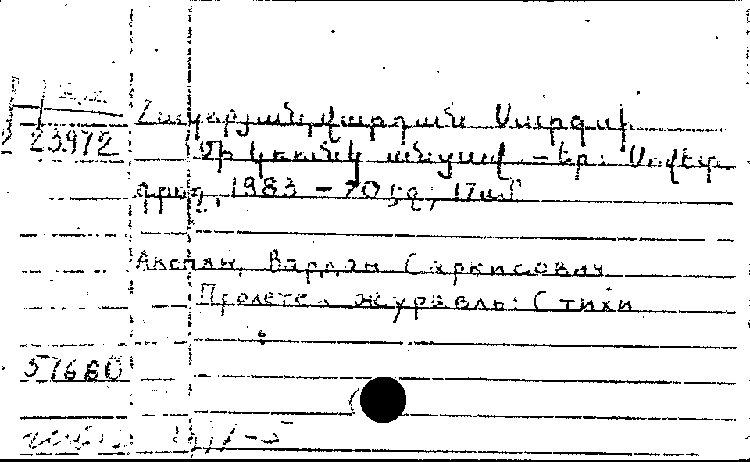 23972
Հակոբյան, Վարդան Սարգսի
Մի կռունկ անցավ. – Եր.: Սովետ.
գրող, 1983 – 70 էջ; 17սմ
Акопян, Вардан Саркисович
Пролетел журавль: Стихи
57680